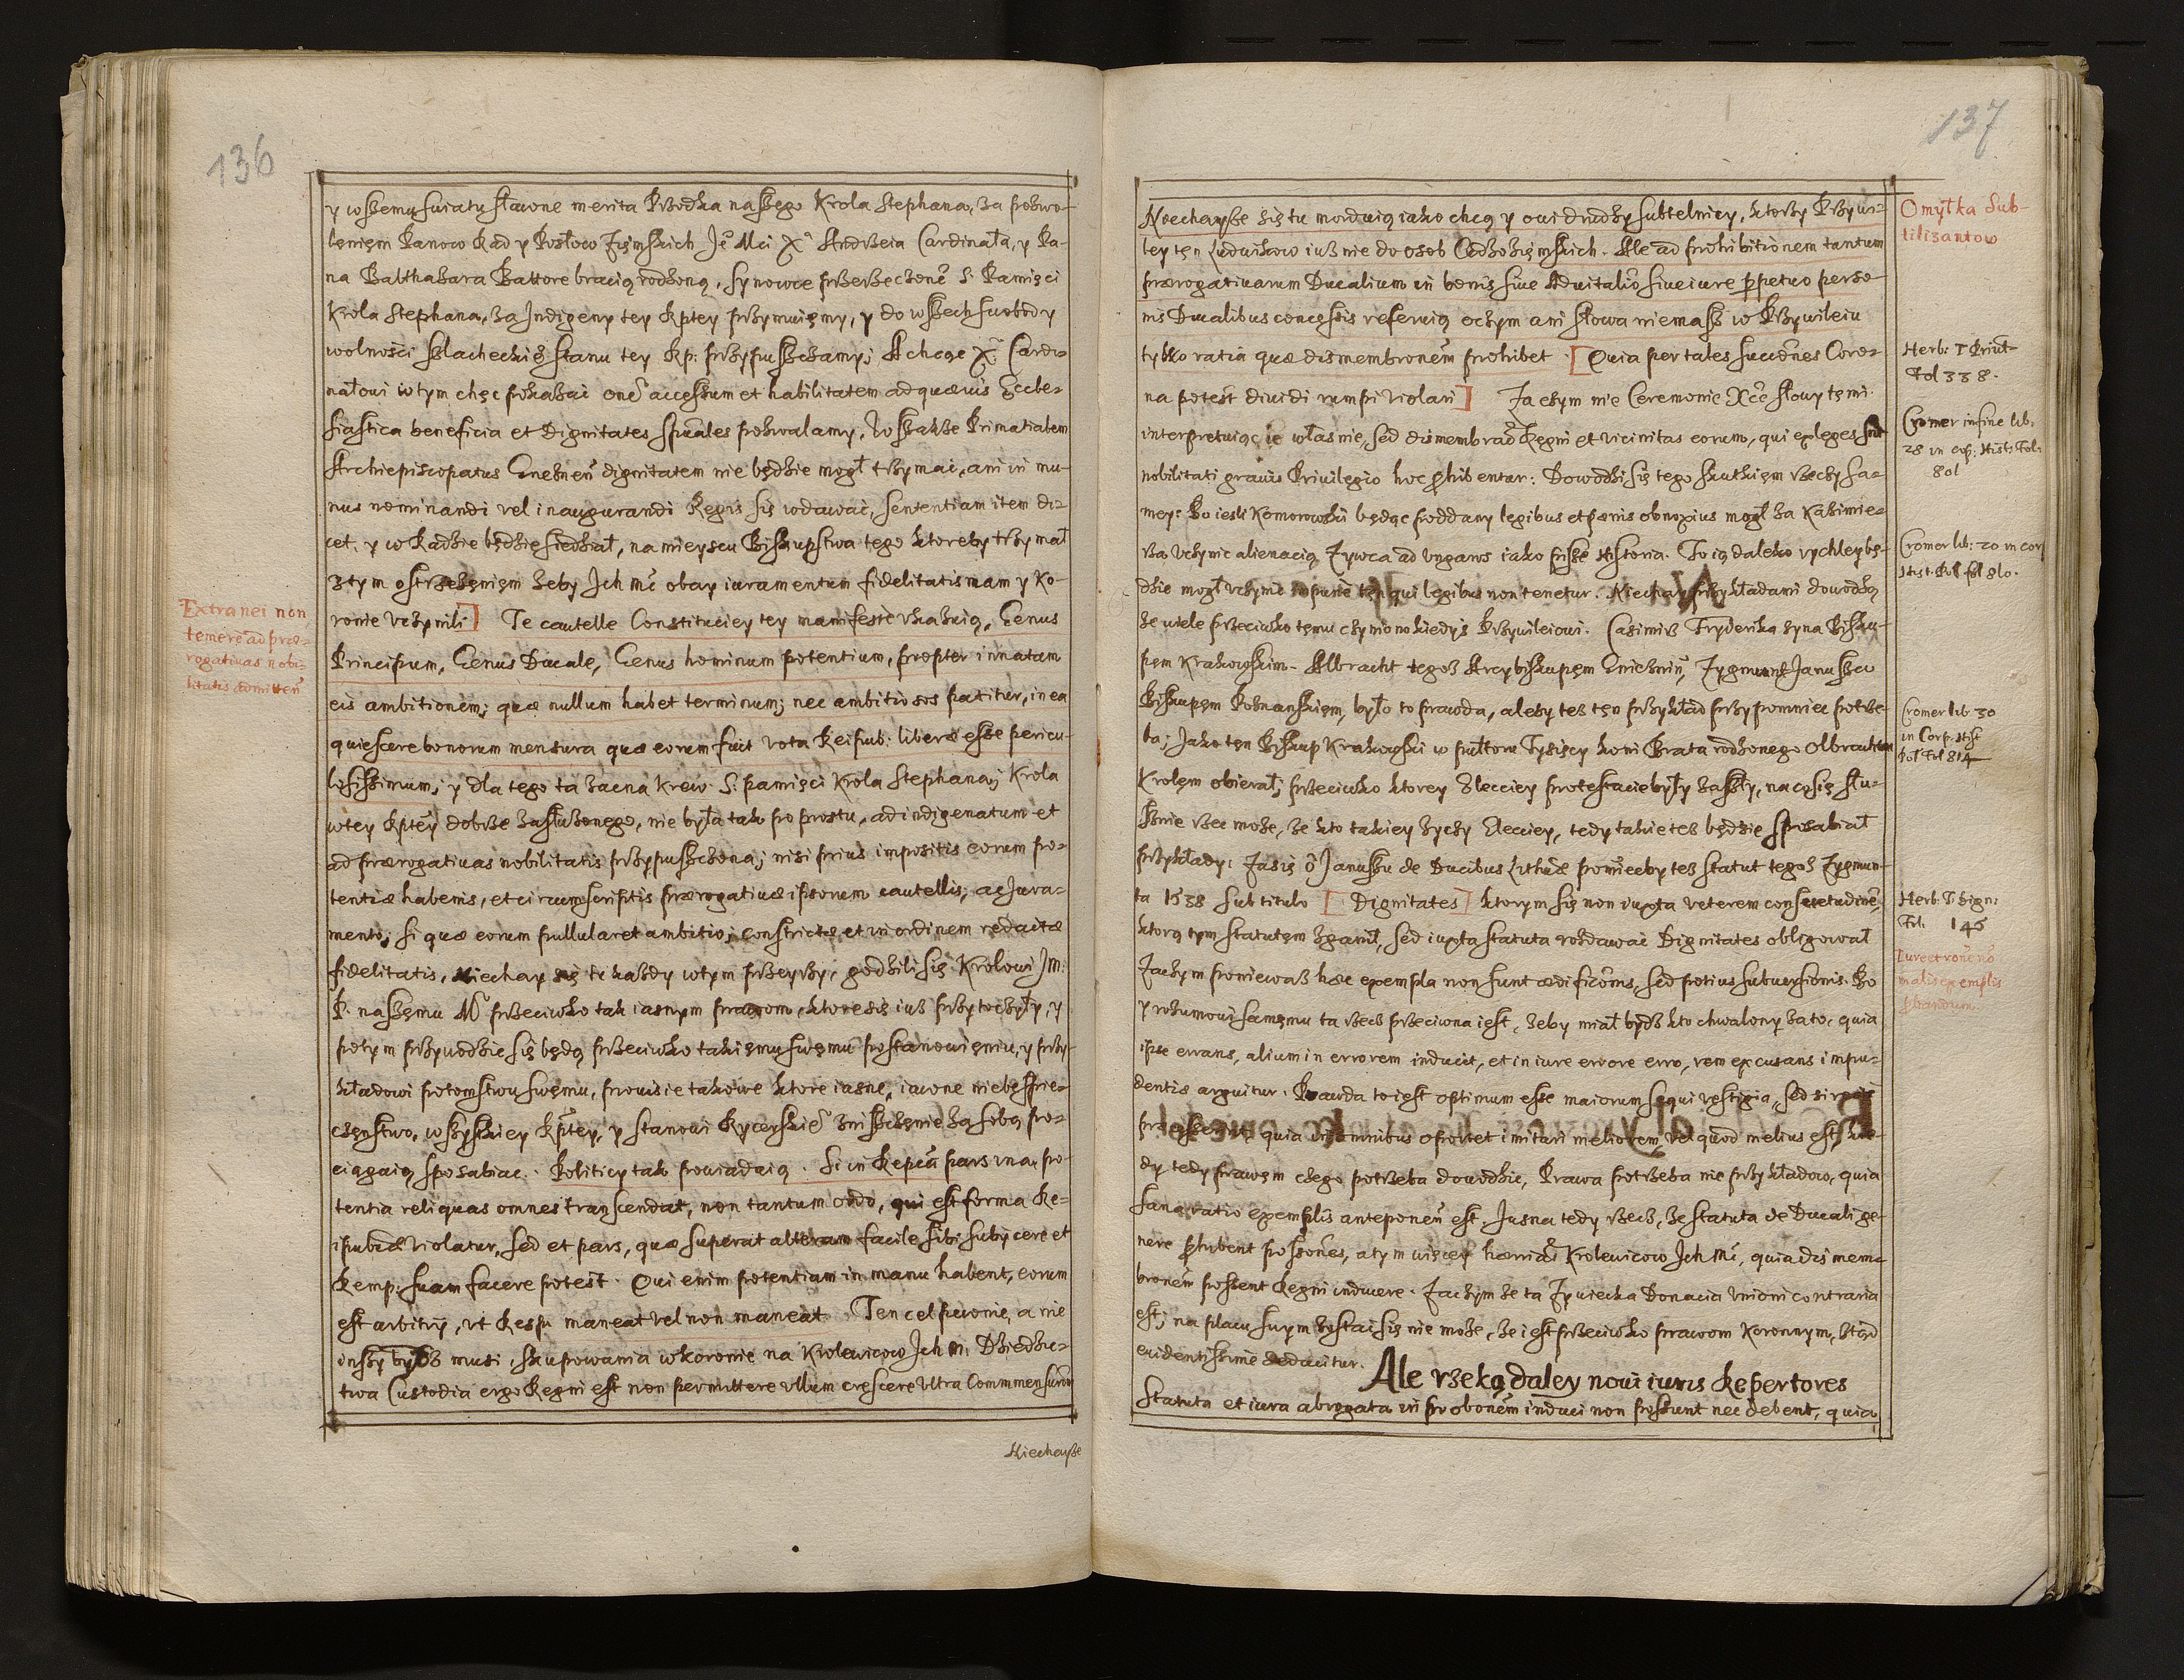 136
y wszemu swiatu sławne merita Przodka naszego Krola Stephana, za pozwo-
lenięm Panow Rad y Posłow Zięmskich Je Mci X. Andrzeia Cardinała, y Pa-
na Balthazara Battore bracią rodzoną, synowce przerzeczone S. Pamięci
Krola Stephana, za Indigeny tey Rptey przymuięmy, y do wszech swobod y
wolności szlacheckie stanu tey Rp: przypuszczamy; A chcąc X. Cardi-
nałowi w tym chęć pokazać one accessum et habilitatem ad quævis Eccle-
siastica beneficia et Dignitates spuales pozwalamy, Wszakże Primatialem
Archiepiscopatus Gneznen dignitatem nie będzie mogł trzymać, ani in mu-
nus nominandi vel inaugurandi Regis się wdawać, sententiam item di-
cet, y w Radzie będzie siedział, na mieyscu Biskupstwa tego ktoreby trzymał
z tym ostrzeżęnięm żeby Ich Mc obay iuramentum fidelitatis nam y Ko-
ronie uczynili ] Te cautelle Constituciey tey manifestè ukazuią, Genus
Extranei non
temerè ad præ-
rogativas nobi-
litatis admitten
Principum, Genus Ducale, Genus hominum potentium, propter innatam
eis ambitionem; quæ nullum habet terminum; nec ambitiosos patitur, in ea
quiescere bonorum mensura quæ eorum fuit vota Reipub: liberæ esse pericu-
losissimum; y dla tego ta zacna Krew S. pamięci Krola Stephana; Krola
w tey Rptey dobrze zasłużonego, nie była tak po prostu, ad indigenatum et
ad prærogativas nobilitatis przypuszczona; nisi prius impositis eorum po-
tentiæ habenis, et circumscriptis prærogativæ ipsorum cautellis; ac Jura-
mento; si quæ eorum pullularet ambitio; constrictæ et in ordinem redactæ
fidelitatis, Niechay się tu każdy w tym przeyrzy, godzili się Krolowi Jm.
P. naszemu M przeciwko tak iasnym prawom, ktore się iuż przytoczyły, y
potym przywodzić się będą przeciwko takięmu swęmu postanowięniu, y przy-
kładowi potomstwu swęmu, prowisie takowe ktore iasne, iawne niebespie-
częnstwo, wszystkiey Rptey, y stanowi Rycerskie zniszczęnie za sobą po-
ciągaią sposabiac. Politicy tak powiadaią. Si in Repca pars una, po-
tentia reliquas omnes transcendat, non tantum ordo, qui est forma Re-
ipubcæ violatur, sed et pars, quæ superat alteram facile sibi subycere et
Remp: suam facere potest. Qui enim potentiam in manu habent, eorum
est arbitry, ut Resp: maneat vel non maneat. Ten cel pewnie, a nie
inszy bydź musi, skupowania w koronie na Krolewicow Ich M. Dziedzic-
twa Custodia ergo Regni est non permittere ullum crescere ultra Commensuron
Niechayże
137
Niechayże się tu morduią iako chcą y owi drudzy subtelnicy, ktorzy Przywi-
ley tęn Ludwikow iuż nie do osob Cudzozięmskich. Ale ad prohibitionem tantum
prærogativarum Ducalium in bonis sive Advitalio sive iure perpetuo perso-
nis Ducalibus concessis referuią oczym ani słowa niemasz w Przywileiu
tylko ratia quæ dismembronem prohibet [ Quia per tales succiones Coro-
na potest dividi rumpi violari ] Zaczym nie Ceremonie Xce słowy tęmi
interpretuiąc ie własnie, sed dismembrao Regni et vicinitas eorum, qui exleges sunt
nobilitati gravis Privilegio hoc prohibentur: Dowodzi się tego skutkięm rzeczy sa-
mey: Bo iesli Komorowski będąc poddany legibus et pænis obnoxius mogł za Kazimie-
rza uczynic alienacią Zywca ad Ungaros iako pisze Historia. To ią daleko rychley bę-
dzie mogł uczynic impunè tęn qui legibus non tenetur. Niechay przykładami dowodzą
że wiele przeciwko tęmu czyniono kiedyś Przywileiowi. Casimirz Fryderika syna Bisku-
pęm Krakowskim. Albracht tegoż Arcybiskupęm Gnieznin, Zygmunt Janussa
Biskupęm Poznanskięm, było to prawda, aleby też tęn przykład przypomniec potrze-
ba; Jako tęn Biskup Krakowski w pułtora Tysięcy koni Brata rodzonego Olbrachta
Krolęm obierał; przeciwko ktorey Elecciey protestacie były zaszły, na co się słu-
sznie rzec może, że kto takiey życzy Elecciey, tedy takie też będzie sposabiał
przykłady: Zasię o Janussu de Ducibus Lithuæ pomiecby też statut tegoż Zygmun-
ta 1538 sub titulo [ Dignitates ] ktorym się non iuxta veterem consuetudine,
ktorą tym statutęm zganił, sed iuxta statuta rozdawać Dignitates obligował
Zaczym poniewasz hæc exempla non sunt ædificonis, sed potius subversionis. Bo
y rozumowi samęmu ta rzecz przeciwna iest, żeby miał bydź kto chwalony zato, quia
ipse errans, alium in errorem inducit, et in iure errore erro, rem excusans impu-
dentiæ arguitur. Prawda to iest optimum esse maiorum sequi vestigia, sed si rectè
præcesserint, quia in omnibus oportet imitari meliorem, vel quod melius est, kie-
dy tedy prawęm czego potrzeba dowodzic, Prawa potrzeba nie przykładow, quia
sana ratio exemplis anteponen est. Jasna tedy rzecz, że statuta de Ducali ge-
nere prohibent possones, a tym więcey Krolewicow Ich Mc, quia dismem-
bronem possent Regni inducere. Zaczym że ta Zywiecka Donacia Unioni contraria
est; na placu swym zostać się nie może, że iest przeciwko prawom Koronnym, ztąd
evidentissime deducitur. Ale rzeką daley novi iuris Repertores
Statuta et iura abrogata in probonem induci non possunt nec debent, quia
Omyłka Sub-
tilizantow
Herb: T Privil-
Fol 338.
Cromer in fine lib:
28 in cor: Hist: Fol:
801
Cromer lib: 20 in cor
Hist. Pol. fol 810.
Cromer lib 30
in Corp. Hist
Pol Fol 814
Herb: T Dign:
Fol. 145
Iure et rone no
malis exemplis
probandum